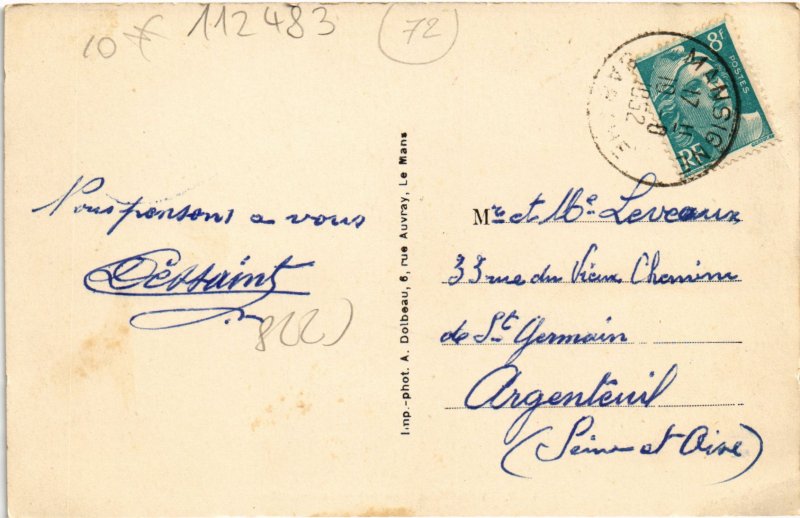 10* 112483
(72)
8f
POSTES
RF
MANSIGNÉ
17 H
SARTHE
Nous pensons a vous
Dessaint
822)
Imp.-phot. A. Dolbeau, 6, rue Auvray, Le Mans
Mr et Me Leveaux
33 rue du Vieux Chemin
de St Germain
Argenteuil
(Seine et Oise)